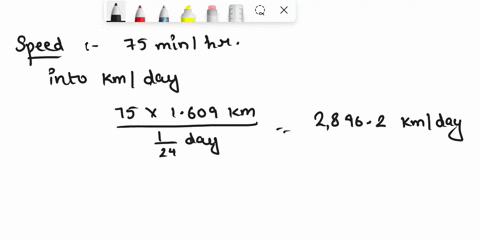 Speed :- 75 min/hr.
into km/day
75 × 1.609 km
1/24 day
= 2,896.2 km/day